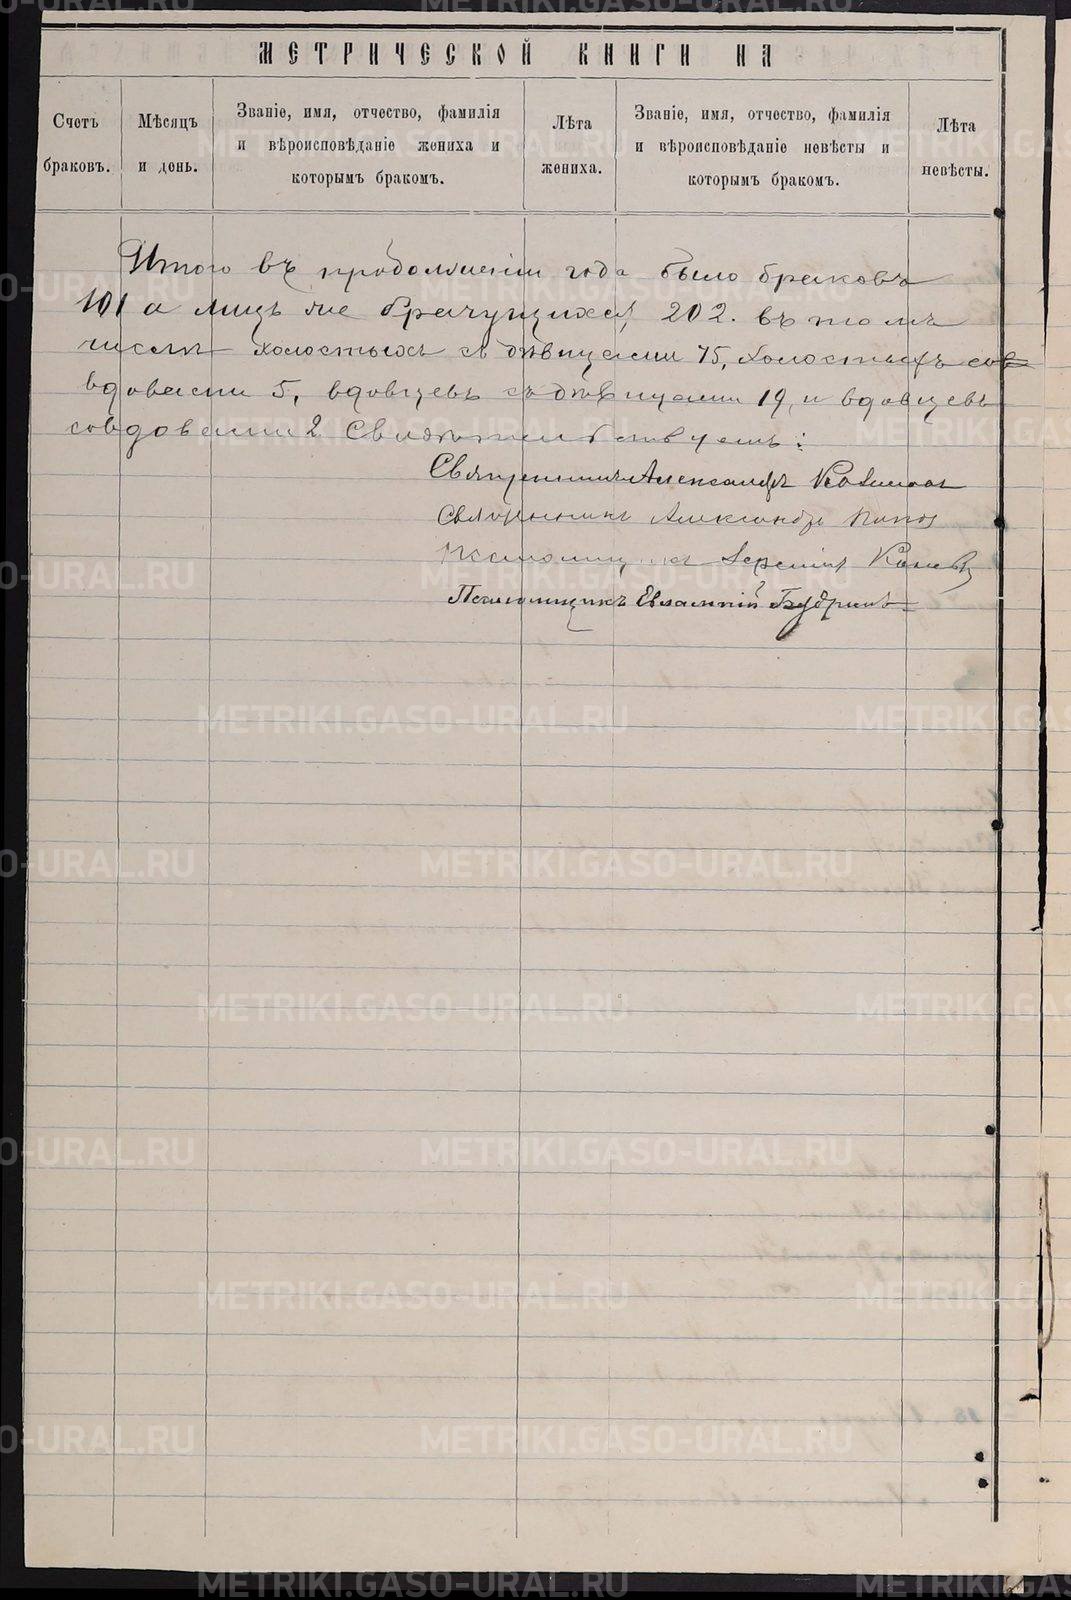 МЕТРИЧЕСКОЙ КНИГИ НА
Счетъ браковъ.
Мѣсяцъ и день.
Званіе, имя, отчество, фамилія и вѣроисповѣданіе жениха и которымъ бракомъ.
Лѣта жениха.
Званіе, имя, отчество, фамилія и вѣроисповѣданіе невѣсты и которымъ бракомъ.
Лѣта невѣсты.
Итого въ продолженіи года было браковъ
101 а лицъ же брачущихся 202. въ томъ
числѣ холостыхъ съ дѣвицами 75, холостыхъ со
вдовами 5, вдовцевъ съ дѣвицами 19, и вдовцевъ
со вдовами 2 Свидѣтельствуемъ:
Священникъ Александръ
Священникъ Александръ Попов
Псаломщикъ
Псаломщикъ Евлампій Будринъ
METRIKI.GASO-URAL.RU